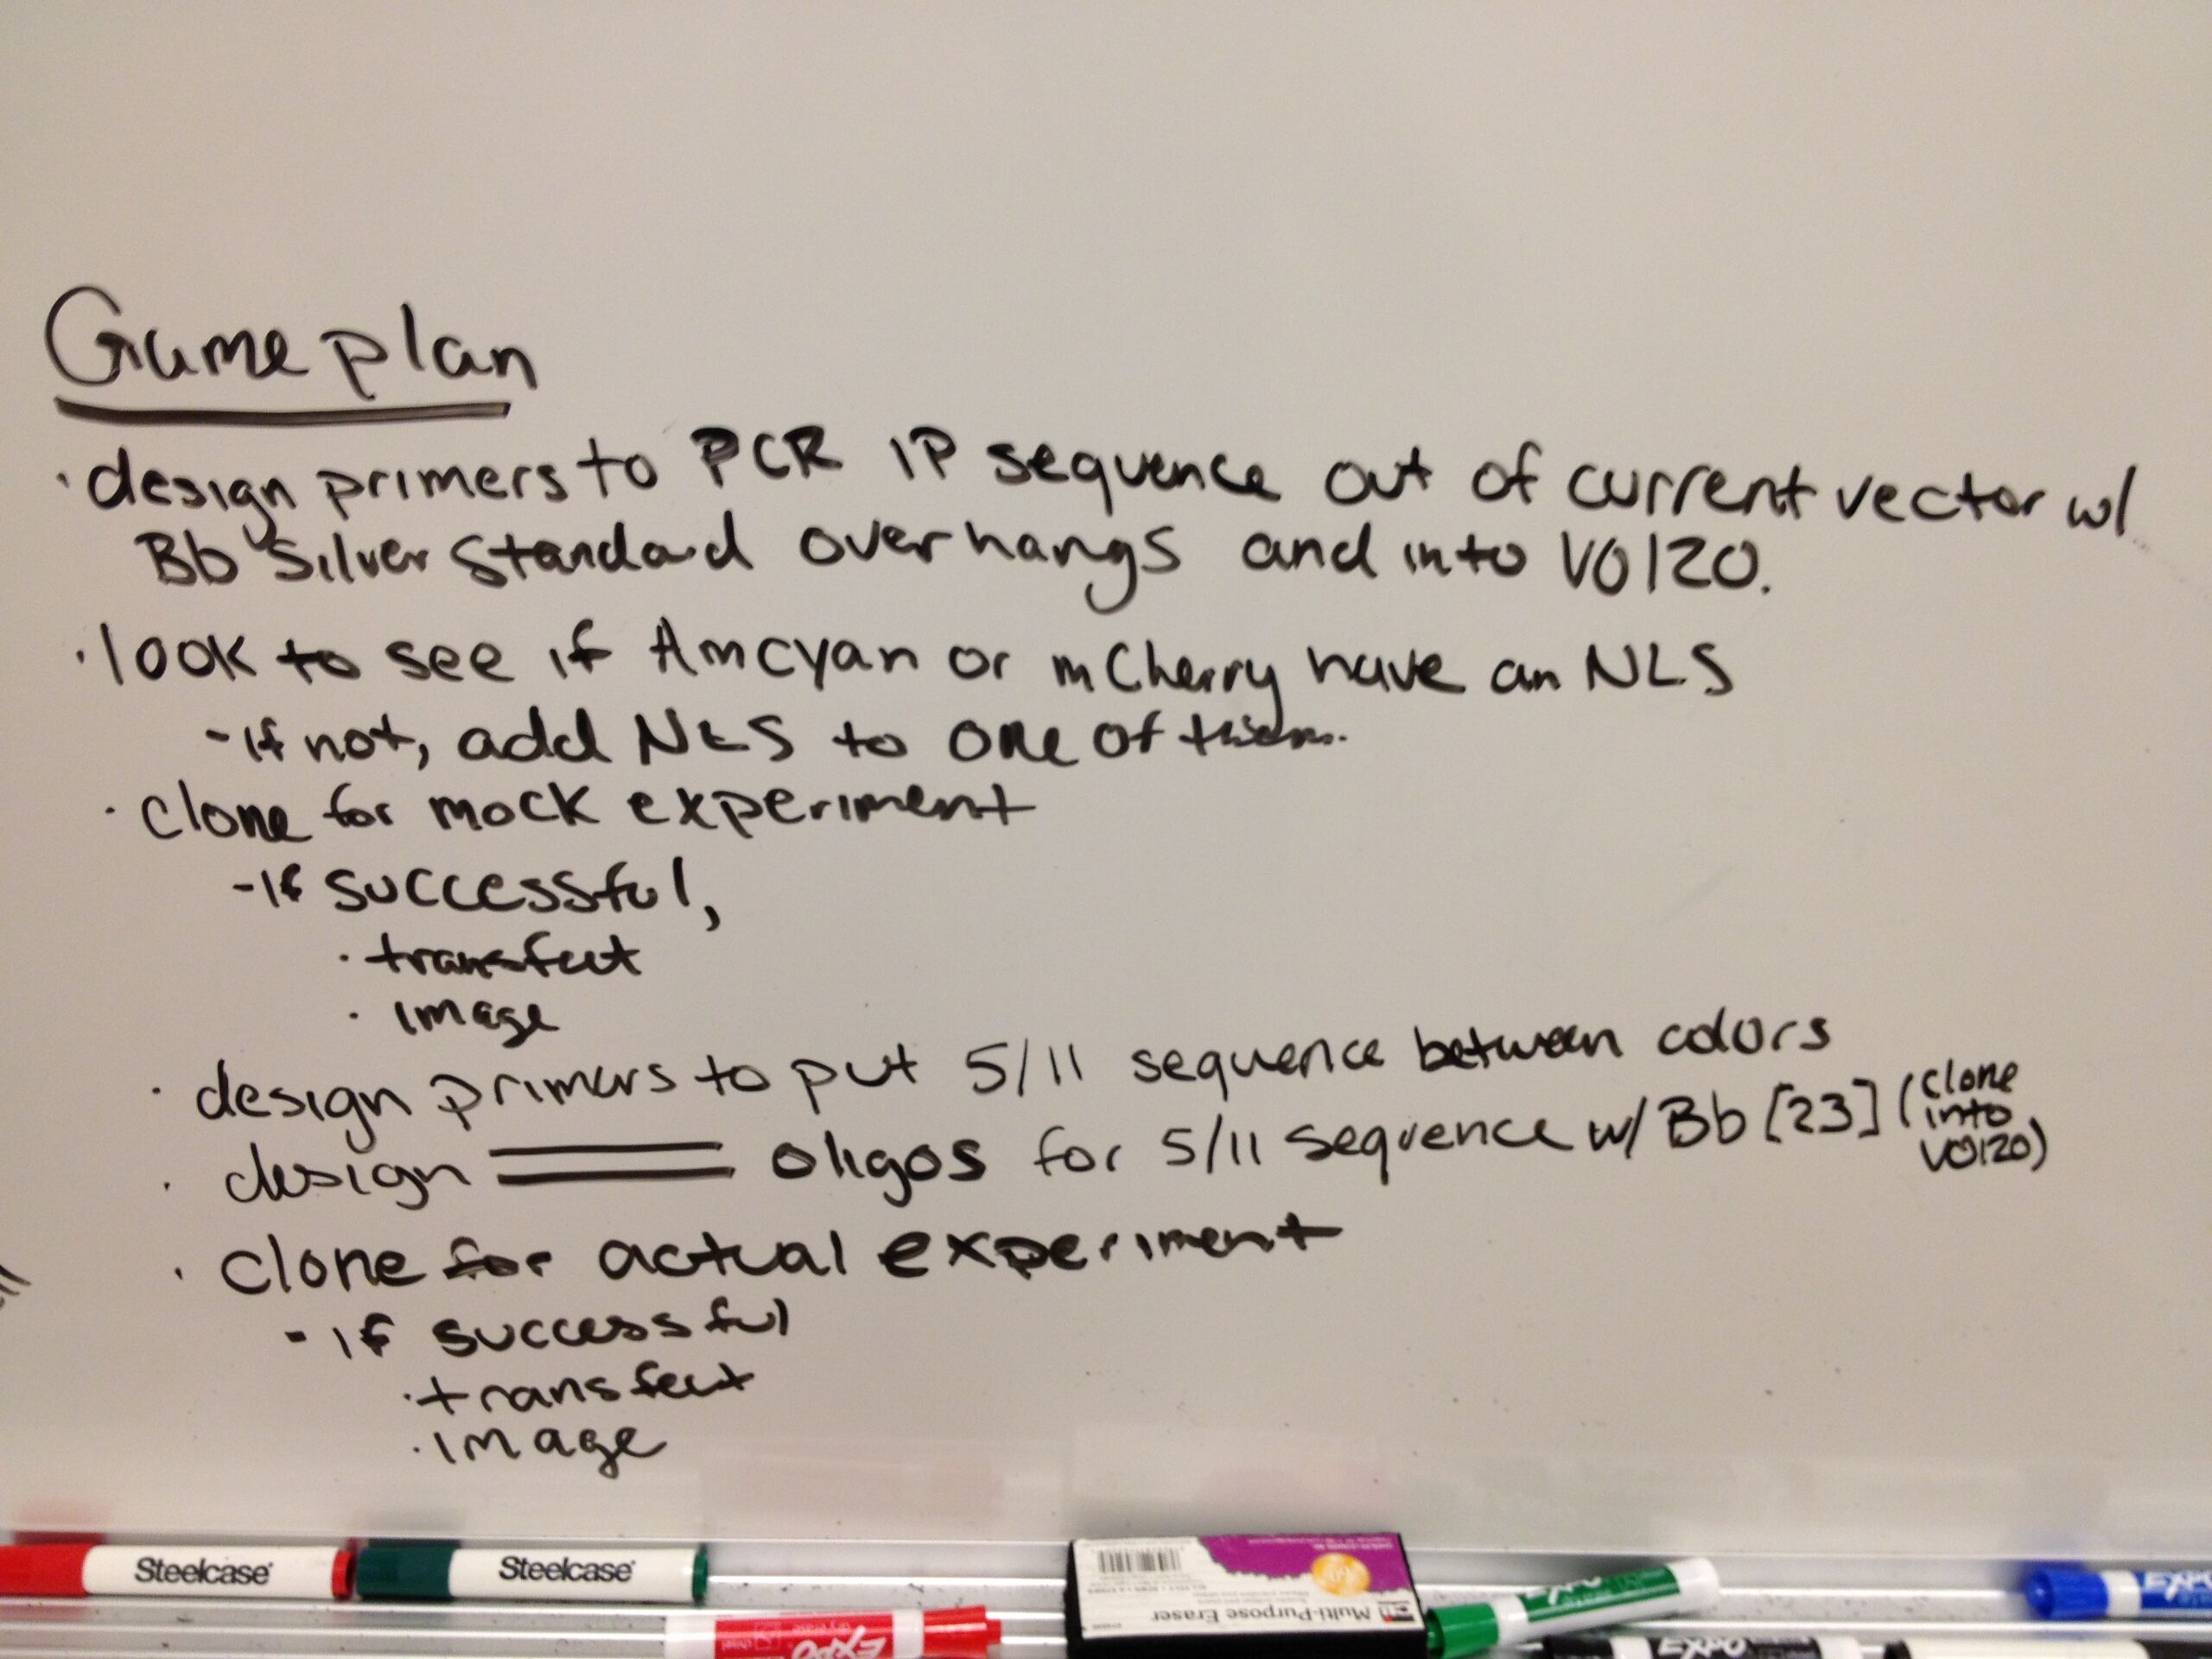 Game plan
· design primers to PCR IP sequence out of current vector w/
Bb Silver Standard overhangs and into V0120.
· look to see if AmCyan or mCherry have an NLS
- if not, add NLS to one of them.
· clone for mock experiment
- If successful,
· transfect
· image
· design primers to put 5/11 sequence between colors
· design oligos for 5/11 sequence w/ Bb [23] (clone
into
V0120)
· clone for actual experiment
- if successful
· transfect
· image
Steelcase
Steelcase
EXPO
Multi-Purpose Eraser
EXPO
EXPO
EXPO